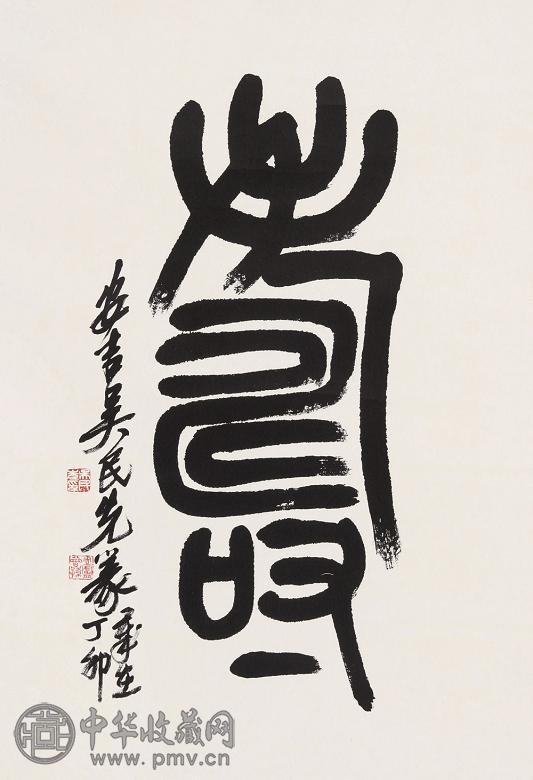 壽
安吉吴民先篆
歲在
丁卯
中华收藏网
www.pmv.cn